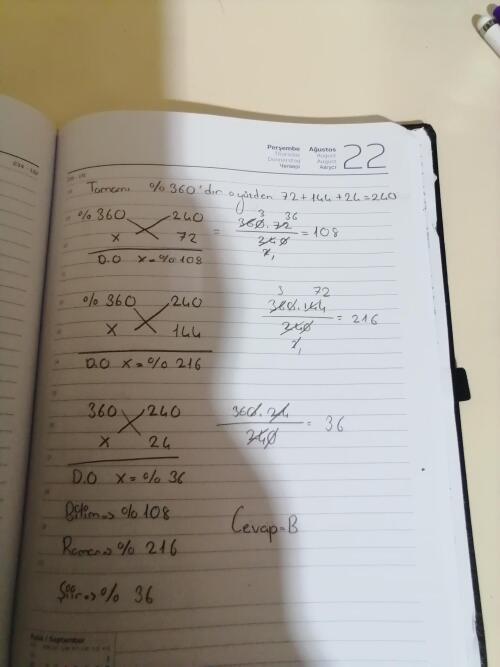 234 - 132
Perşembe Ağustos 22
Thursday August
Donnerstag August
Четверг Август
Tamamı %360'dır o yüzden 72+144+24=240
%360 240 = 360.72 / 240 = 108
x 72
D.O x=%108
%360 240 360.144 / 240 = 216
x 144
D.O x=%216
360 240 360.24 / 240 = 36
x 24
D.O x=%36
Bilim=>%108
Roman=>%216
Cevap=B
Şiir=>%36
Eylül / September